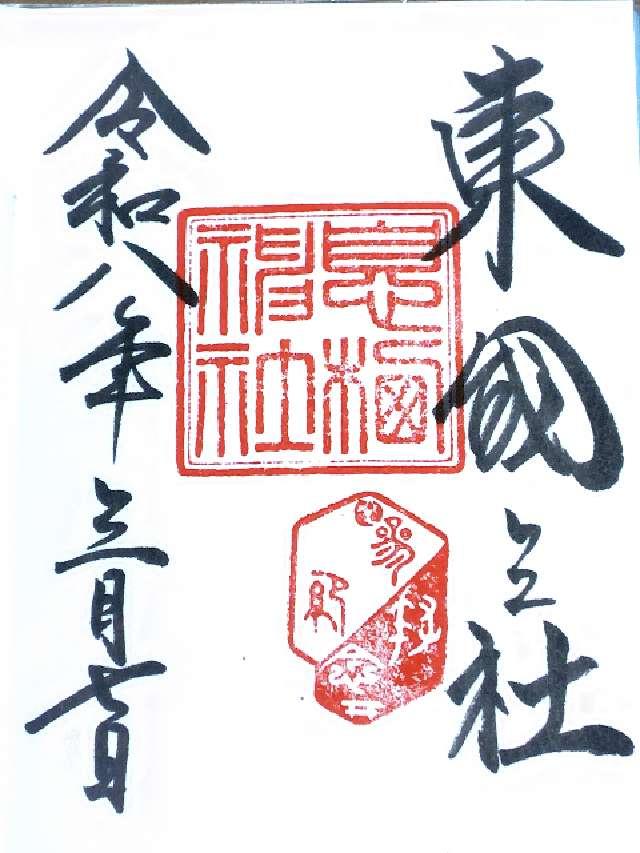 東國三社
息栖
神社
令和八年三月七日